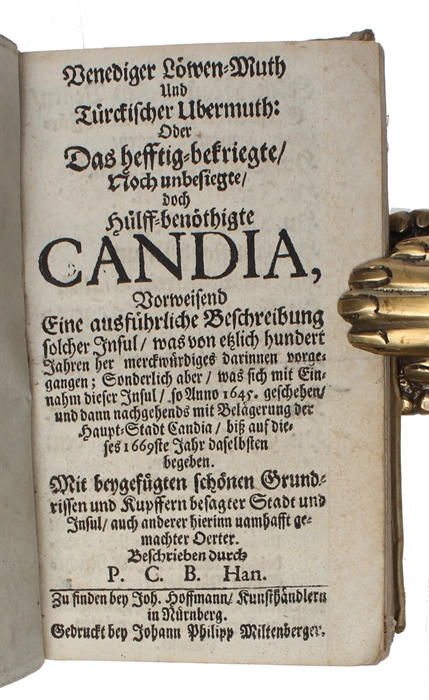 Venediger Löwen-Muth
Und
Türckischer Ubermuth:
Oder
Das hefftig-bekriegte/
Noch unbesiegte/
doch
Hülff-benöthigte
CANDIA,
Vorweisend
Eine ausführliche Beschreibung
solcher Insul/ was von etzlich hundert
Jahren her merckwürdiges darinnen vorge-
gangen; Sonderlich aber/ was sich mit Ein-
nahm dieser Insul/ so Anno 1645. geschehen/
und dann nachgehends mit Belägerung der
Haupt-Stadt Candia/ biß auf die-
ses 1669ste Jahr daselbsten
begeben.
Mit beygefügten schönen Grund-
rissen und Kupffern besagter Stadt und
Insul/ auch anderer hierinn namhafft ge-
machter Oerter.
Beschrieben durch
P. C. B. Han.
Zu finden bey Joh. Hoffmann/ Kunsthändlern
in Nürnberg.
Gedruckt bey Johann Philipp Miltenberger.